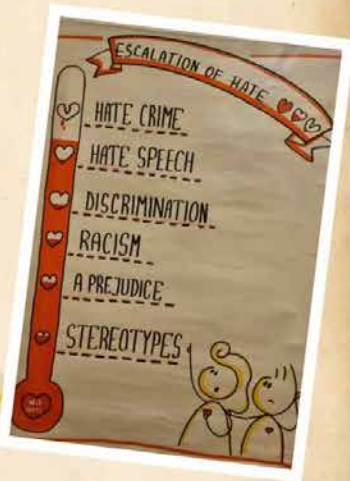 ESCALATION OF HATE
HATE CRIME
HATE SPEECH
DISCRIMINATION
RACISM
A PREJUDICE
STEREOTYPES